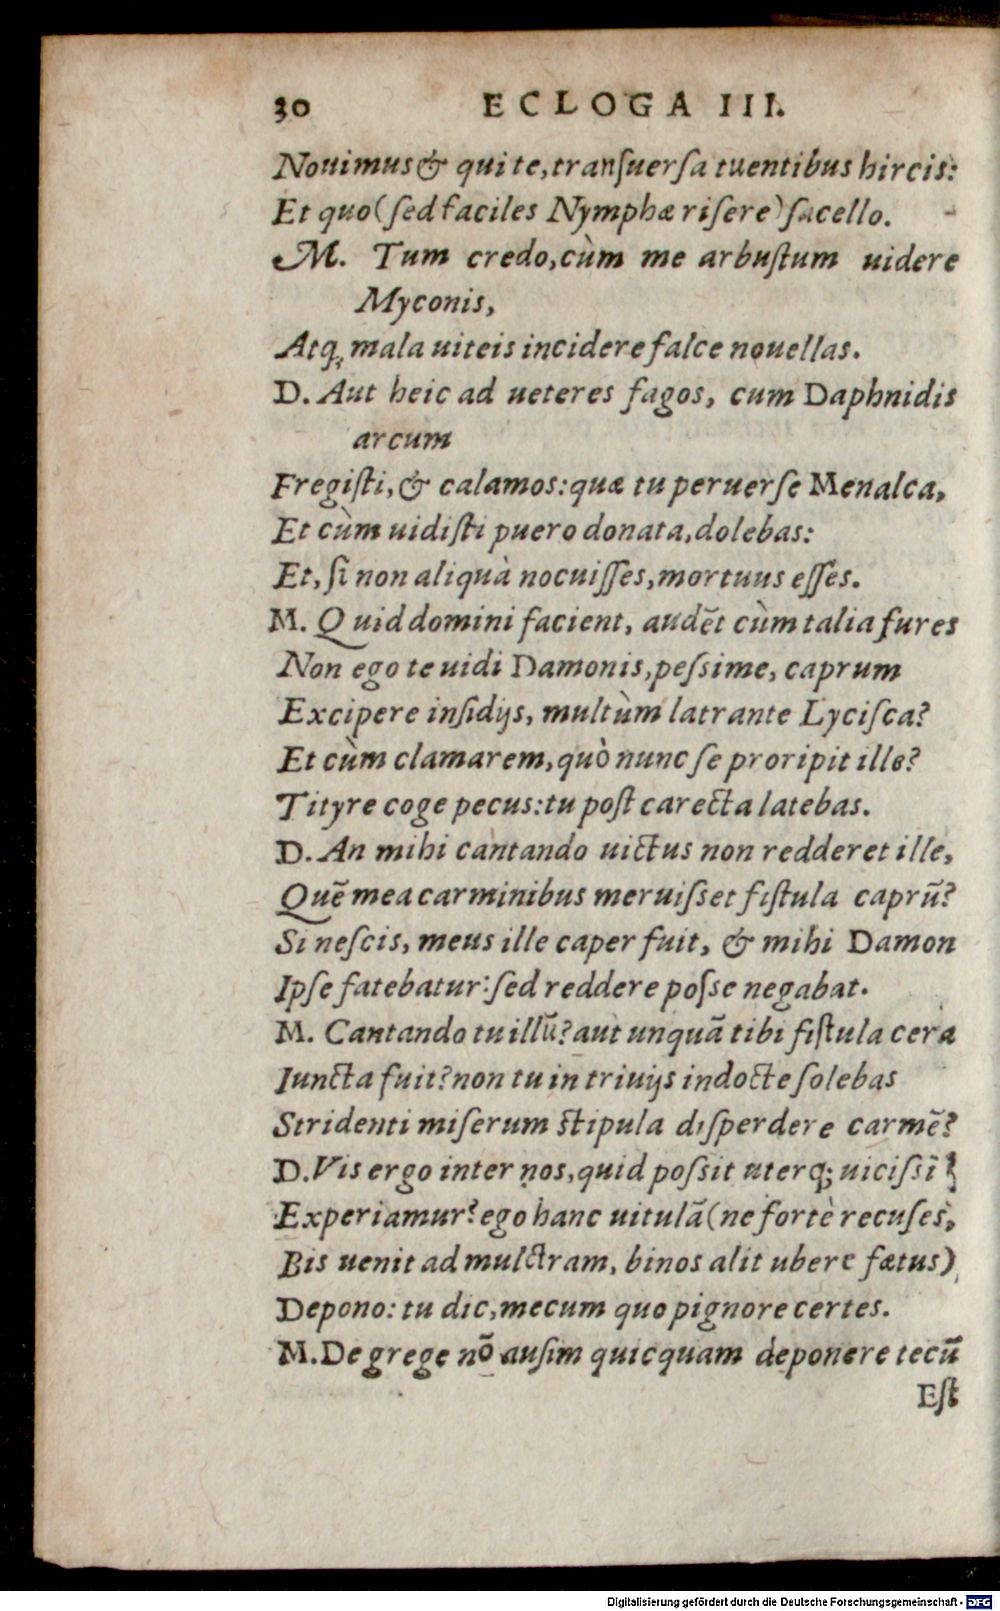 30 ECLOGA III.
Nouimus & qui te, tranſuerſa tuentibus hircis:
Et quo (ſed faciles Nymphæ riſere) ſacello.
M. Tum credo, cùm me arbuſtum uidere
Myconis,
Atq; mala uiteis incidere falce nouellas.
D. Aut heic ad ueteres fagos, cum Daphnidis
arcum
Fregiſti, & calamos: quæ tu peruerſe Menalca,
Et cùm uidiſti puero donata, dolebas:
Et, ſi non aliquà nocuiſſes, mortuus eſſes.
M. Quid domini facient, audẽt cùm talia fures
Non ego te uidi Damonis, peſsime, caprum
Excipere inſidijs, multùm latrante Lyciſca?
Et cùm clamarem, quò nunc ſe proripit ille?
Tityre coge pecus: tu poſt carecta latebas.
D. An mihi cantando uictus non redderet ille,
Quẽ mea carminibus meruiſset fiſtula caprũ?
Si neſcis, meus ille caper fuit, & mihi Damon
Ipſe fatebatur: ſed reddere poſse negabat.
M. Cantando tu illũ? aut unquã tibi fiſtula cera
Iuncta fuit? non tu in triuijs indocte ſolebas
Stridenti miſerum ſtipula diſperdere carmẽ?
D. Vis ergo inter nos, quid poſsit uterq; uiciſsĩ
Experiamur? ego hanc uitulã (ne fortè recuſes,
Bis uenit ad mulctram, binos alit ubere fœtus)
Depono: tu dic, mecum quo pignore certes.
M. De grege nõ auſim quicquam deponere tecũ
Eſt
Digitalisierung gefördert durch die Deutsche Forschungsgemeinschaft - DFG